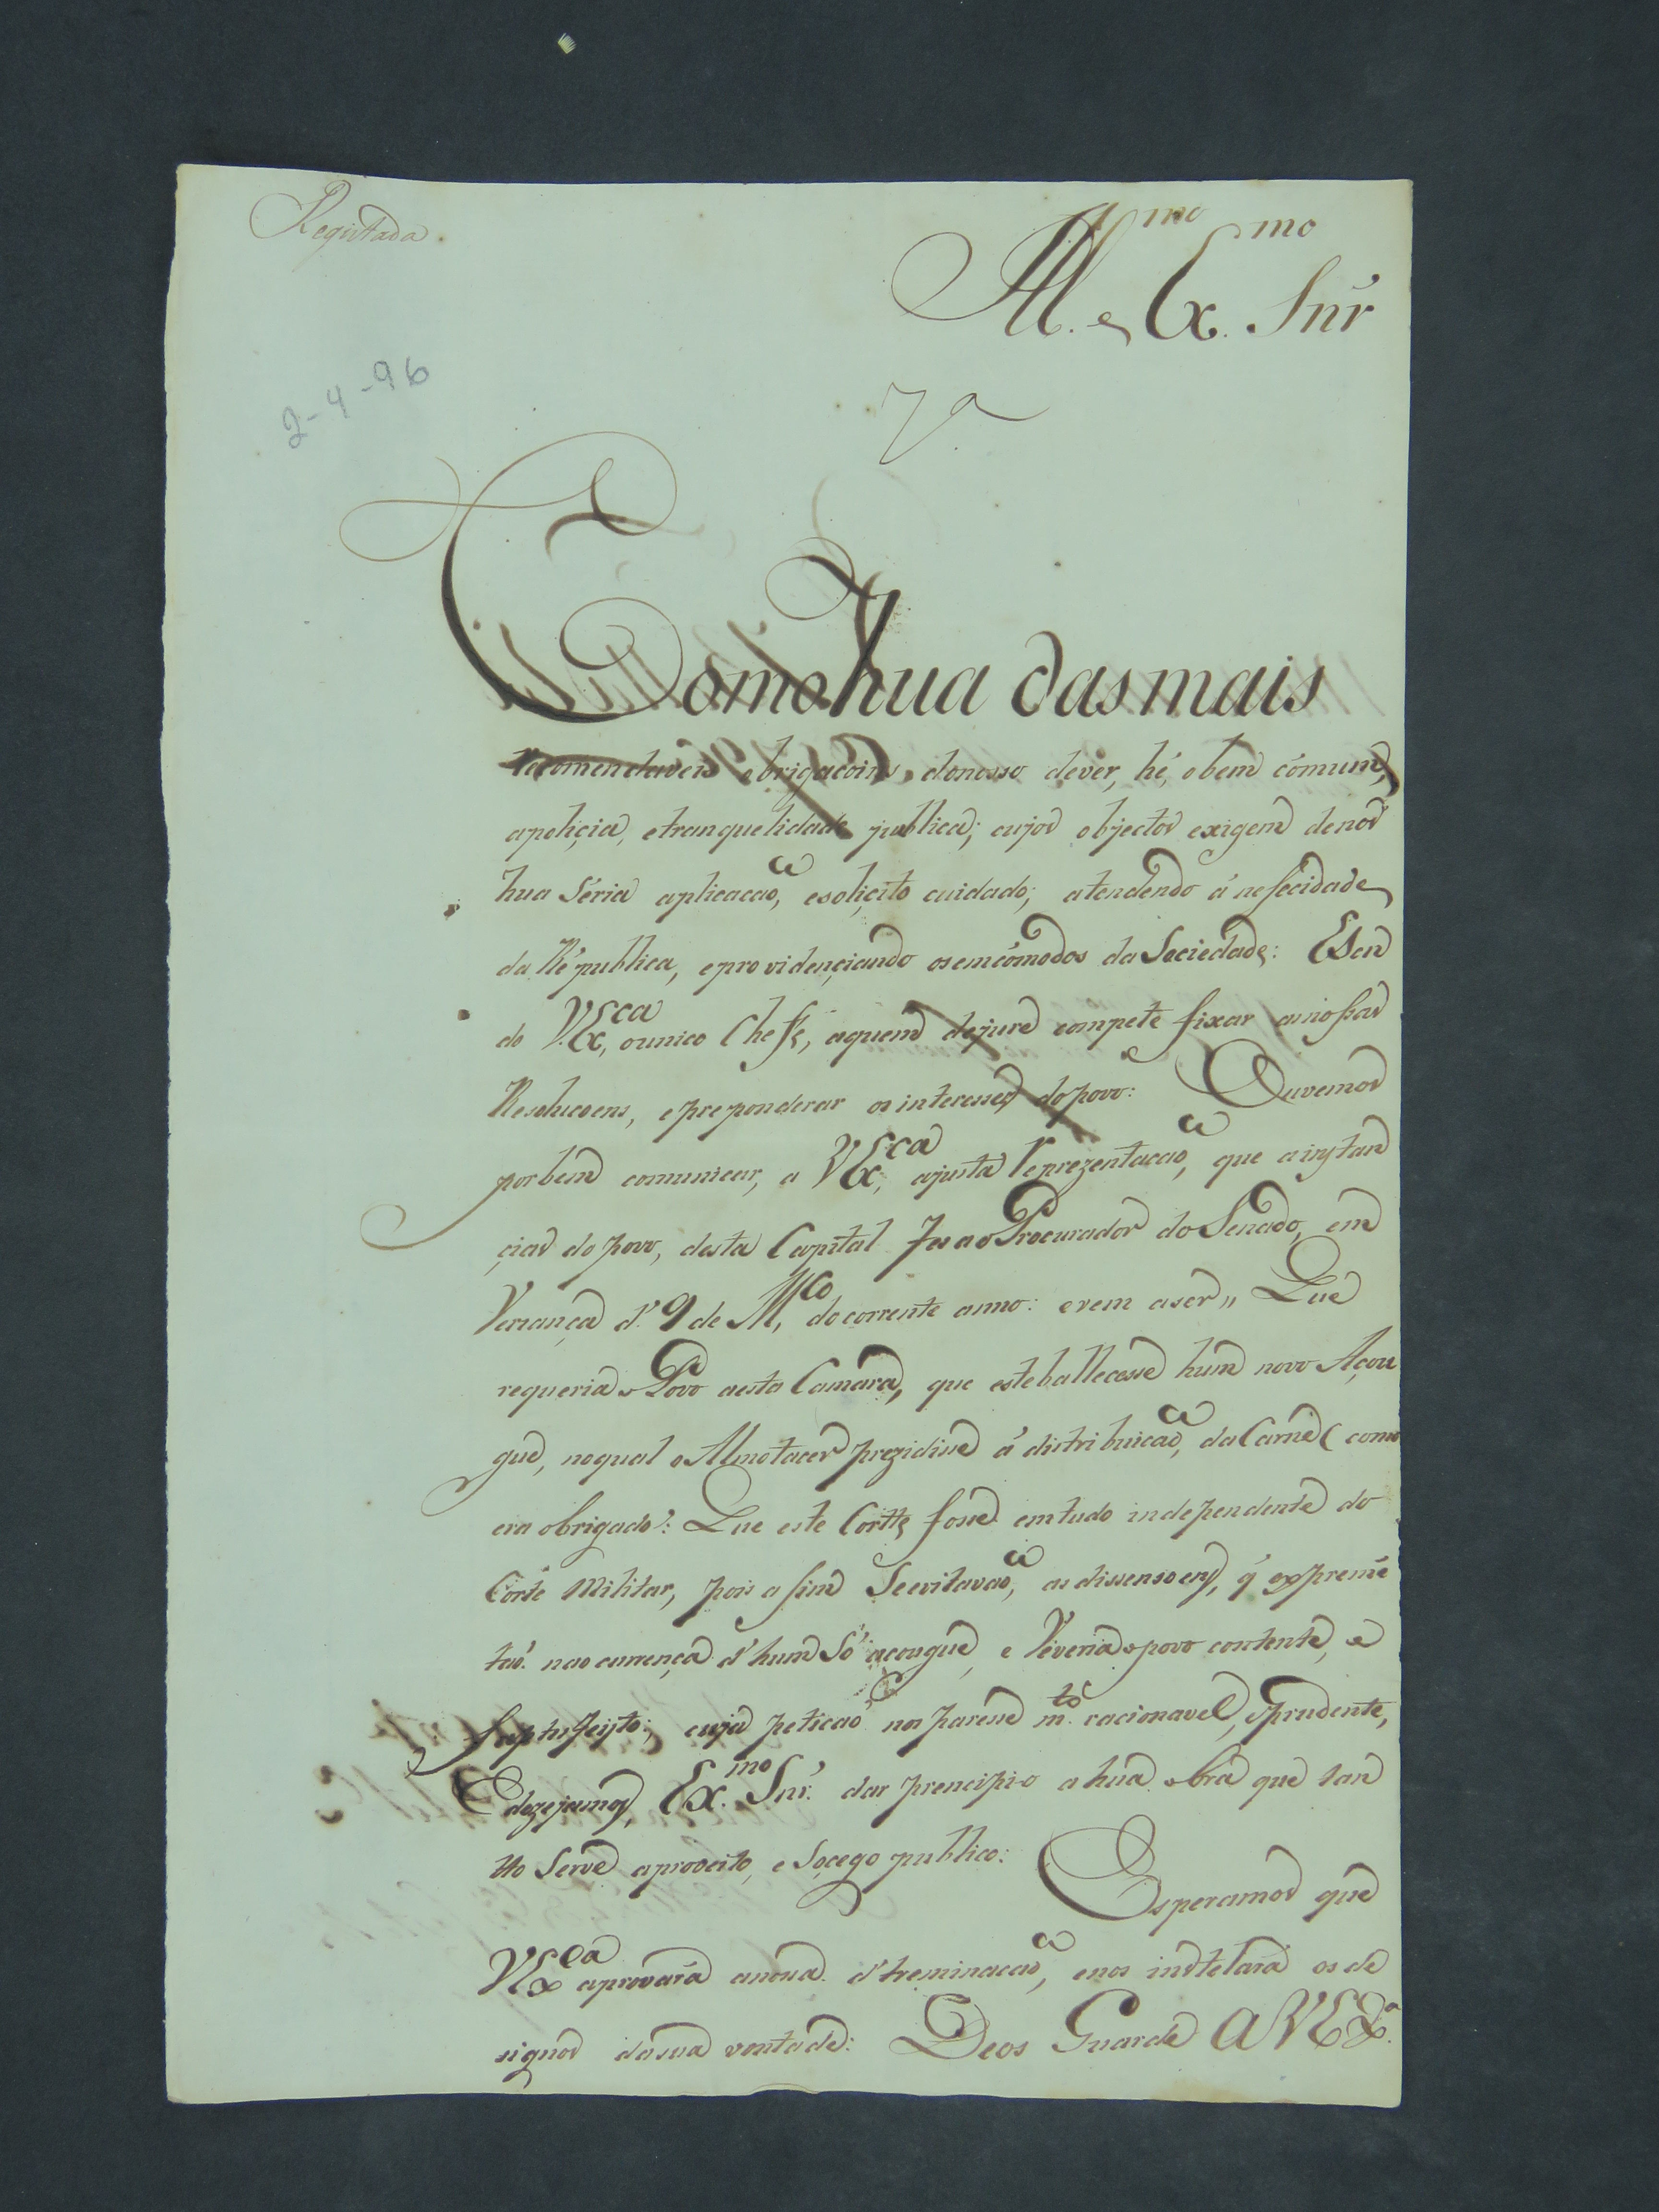 Registada.
Ill.mo e Ex.mo Snr̃
2-4-96
7a
Como hua das mais
recomendaveis obrigacoins, donosso dever, hé, obem cómum,
apoliçia, etranquelidade publica; cujos objectos exigem denos
hua séria aplicacaõ, esoliçito cuidado; atendendo á nessecidade
da Républica, eprovidençiando osemcómodos da Sociedade: E Sen
do V.Ex.ca, ounico Cheffe, aquem dejure compete fixar as nossas
Resolucoens, epreponderar os interesses dopovo: Ouvemos
porbem comunicar, a V.Ex.ca, ajusta reprezentacaõ, que a instan
çias do povo, desta Capital fes ao Procurador do Senado, em
Verianca d' 9 de M.co, do corrente anno: evem aser,, Que
requeria o Povo aesta Camara, que estaballecesse hum novo Açou
gue, noqual o Almotacer prezidisse á distribuicaõ, da Carne ( como
era obrigado): Que este Cortte fosse em tudo independente do
Córte Militar, pois assim Seevitavaõ, as dissensoens, q̃ expremẽ
taõ. nao currença d' hum Só açougue, e Viveria o povo contente, e
Saptisfeijto; cuja peticaõ nos paresse m.to racionavel, e prudente,
E dezejamos, Ex.mo Snr̃. dar prencipio a hua obra que tan
tto Serve aproveito, e Soçego publico: Esperamos que
V.Ex.ca aprovará anossa d'treminacaõ, enos indtelará os de
signos dasua vontade: Deos Guarde A V.EX.a